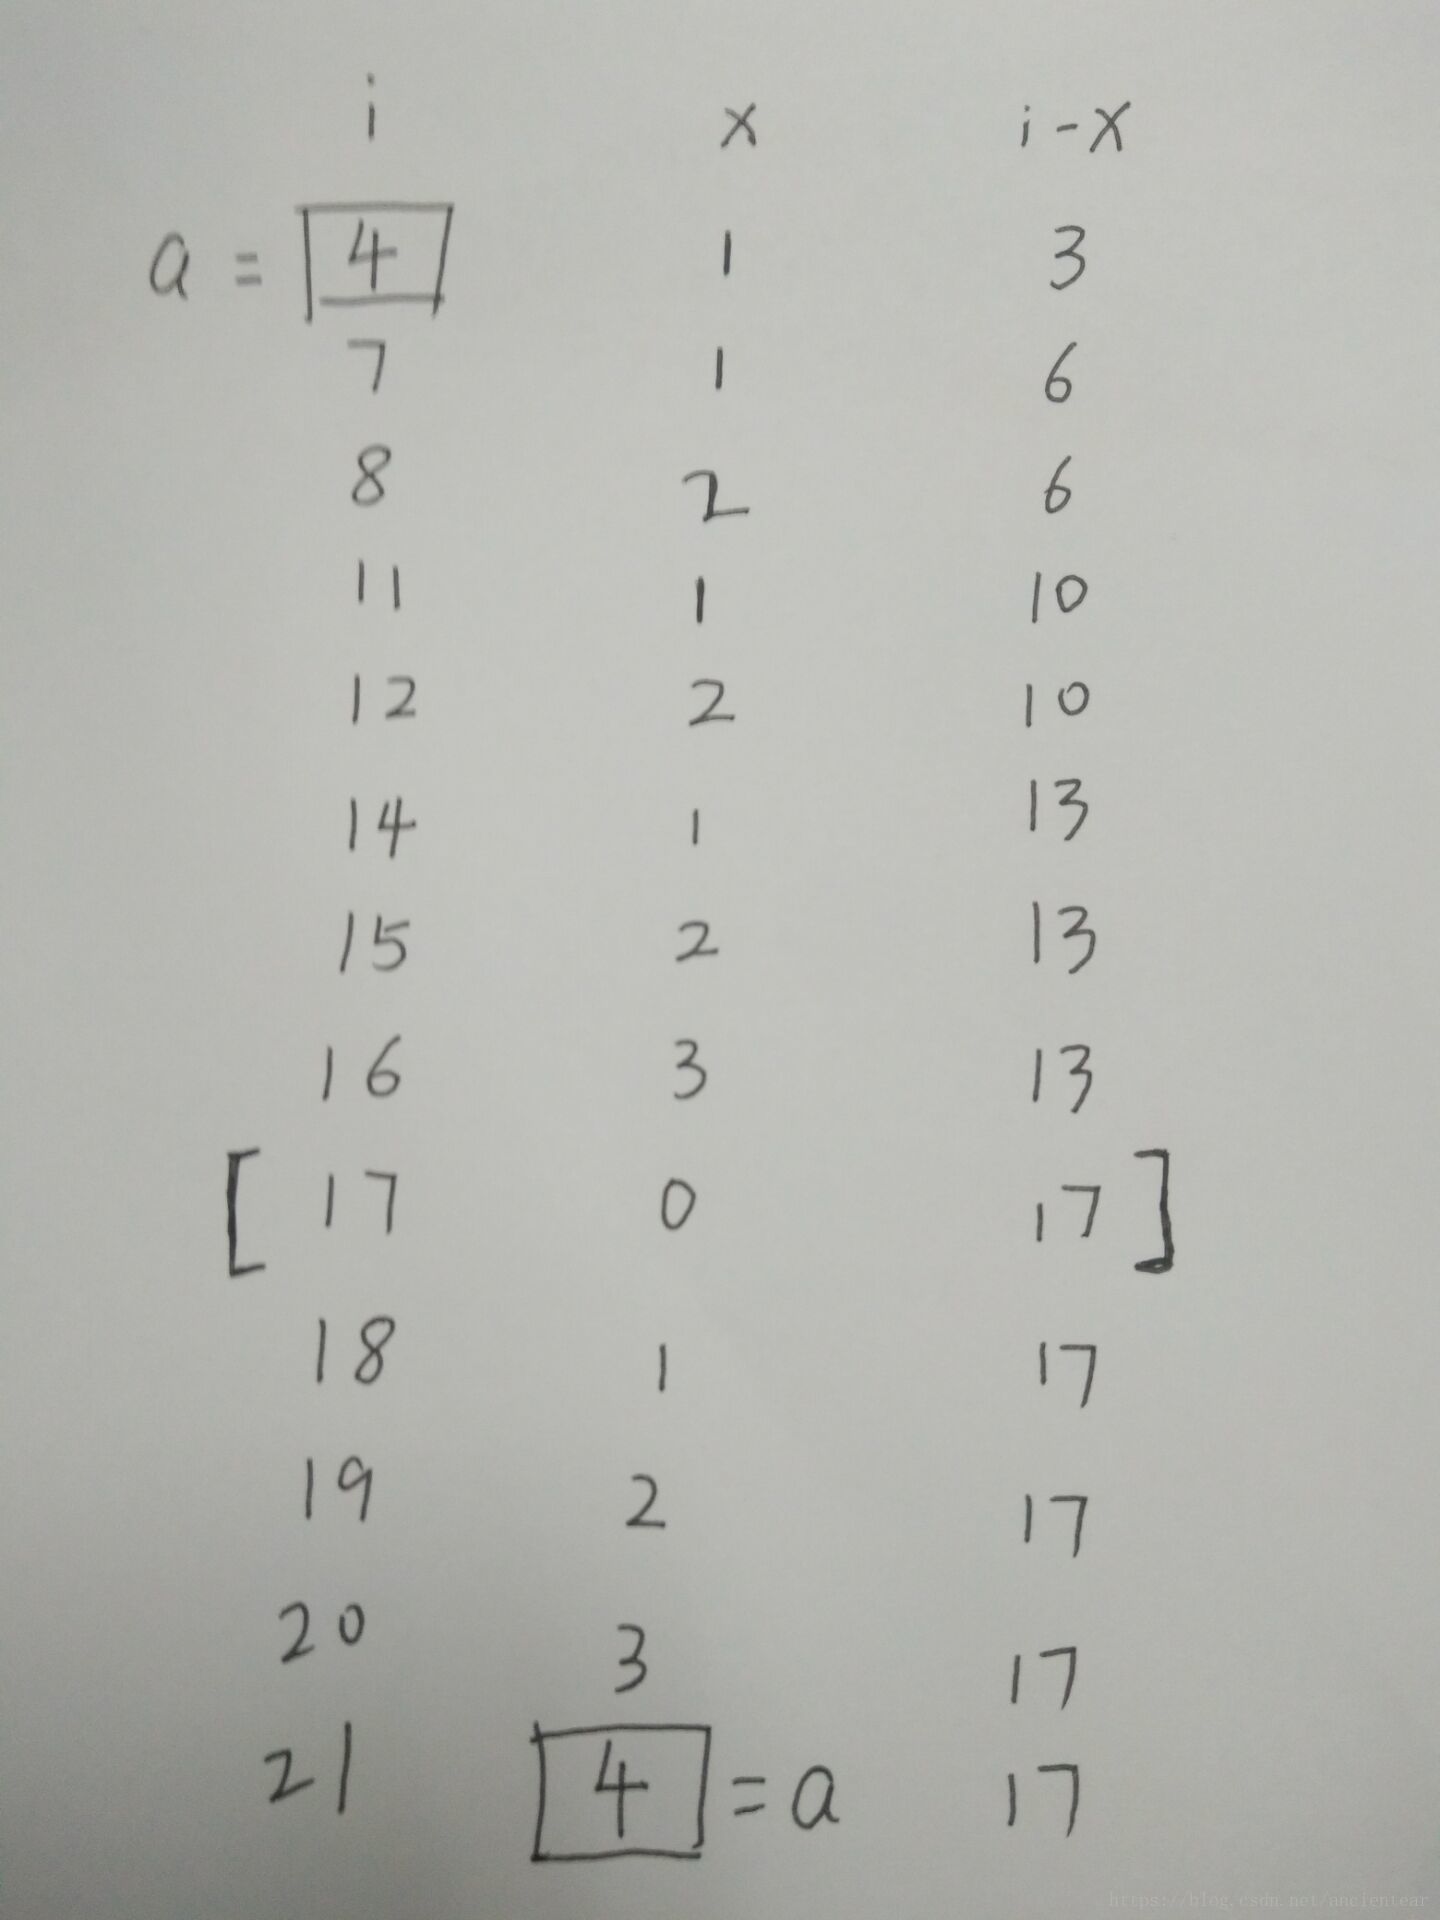 i x i-x
a = 4 1 3
7 1 6
8 2 6
11 1 10
12 2 10
14 1 13
15 2 13
16 3 13
[ 17 0 17 ]
18 1 17
19 2 17
20 3 17
21 4 = a 17
https://blog.csdn.net/ancientear